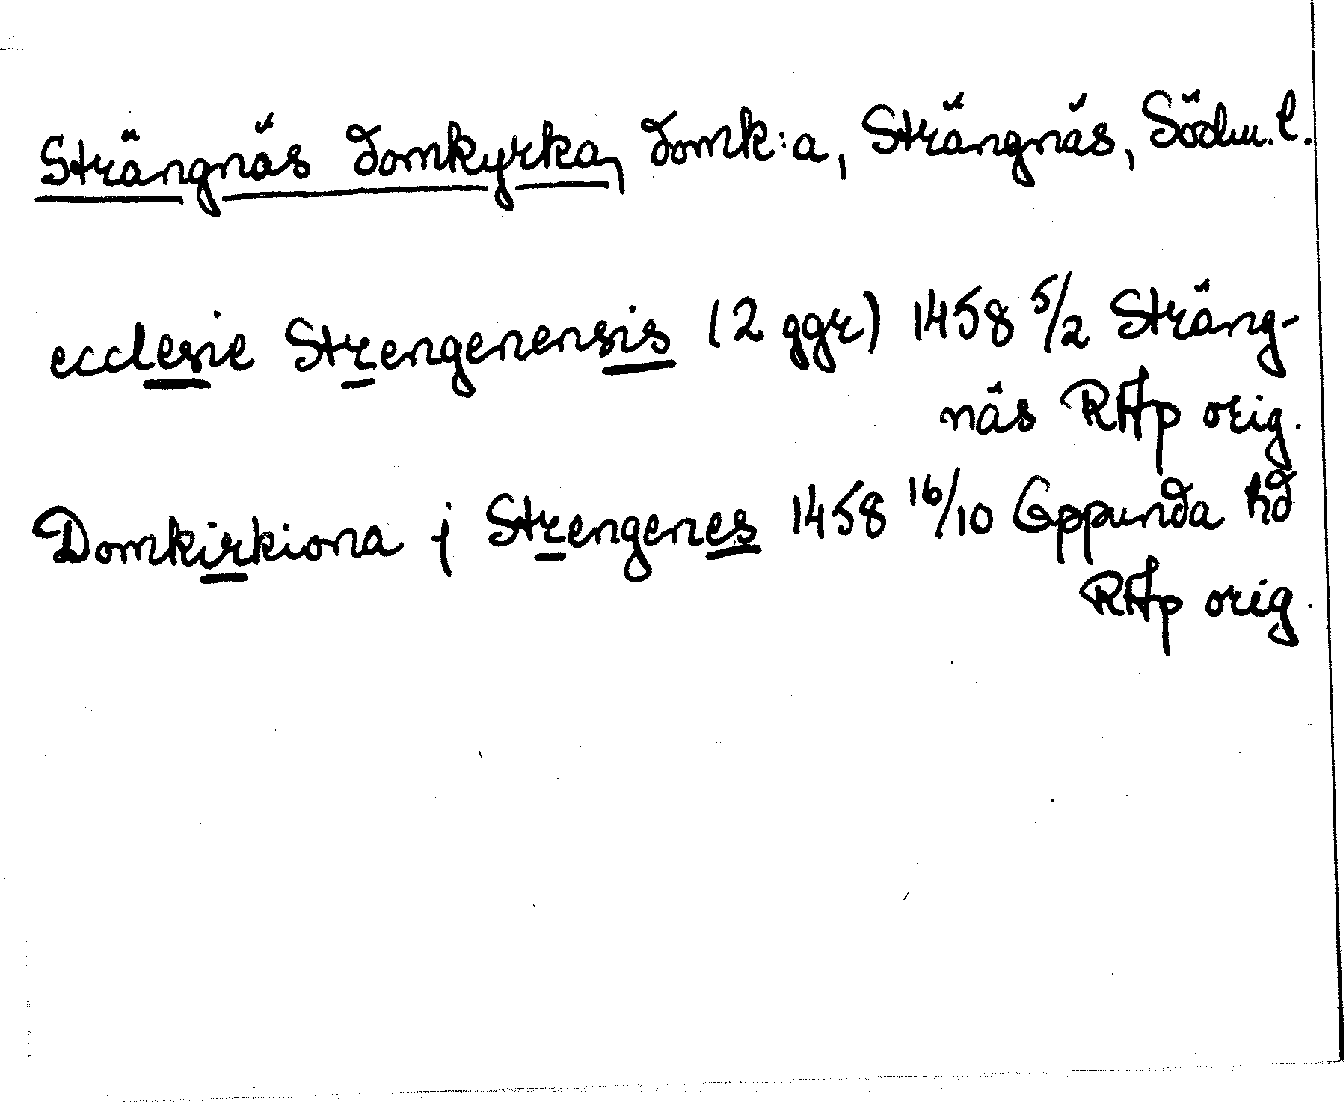 Strängnäs domkyrka, domk:a, Strängnäs, Södm. l.
ecclesie Strengenensis (2 ggr) 1458 5/2 Sträng-
näs RAp orig.
Domkirkiona j Strengenes 1458 16/10 Oppunda hd
RAp orig.